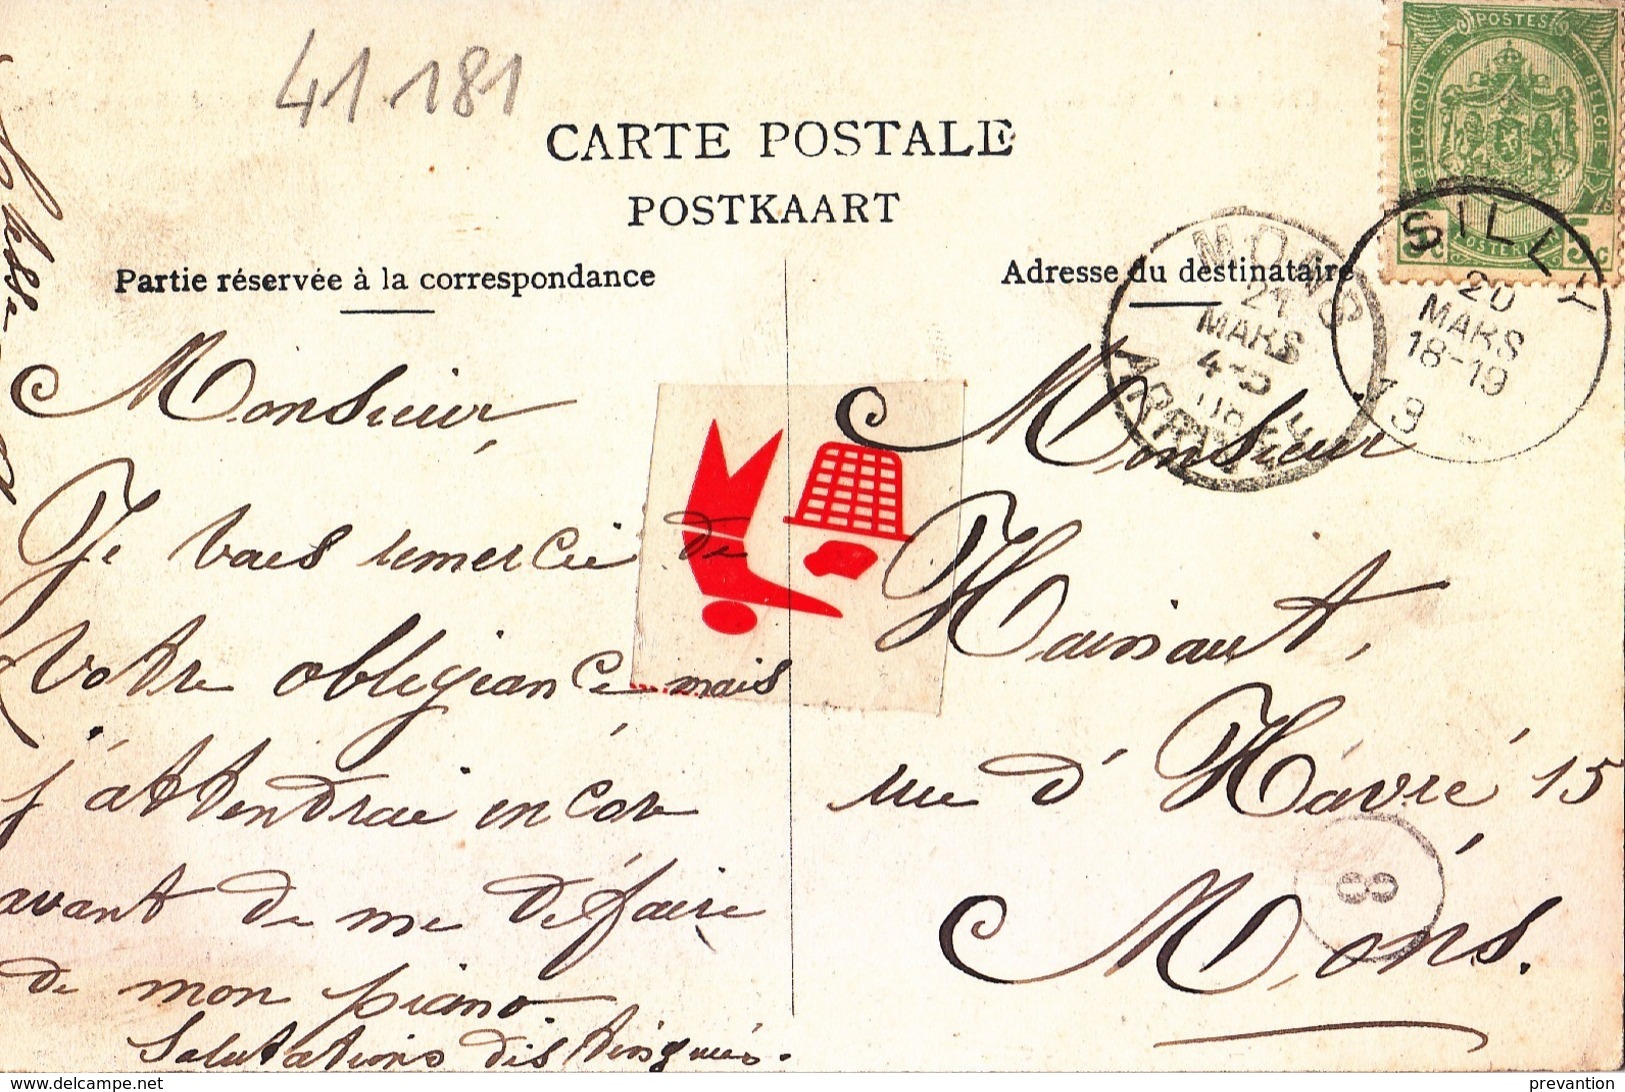 41.181
CARTE POSTALE
POSTKAART
Partie réservée à la correspondance
Adresse du destinataire
POSTES
BELGIQUE
BELGIE
5c
5c
SILLY
20
MARS
18-19
MONS
21
MARS
4-5
08
ARRIVÉE
Monsieur,
Je vous remercie de
votre obligeance mais
j'attendrai encore
avant de me défaire
de mon piano.
Salutations distingués.
Monsieur
Hainaut,
rue d'Havré, 15
Mons.
8
delcampe.net
prevantion